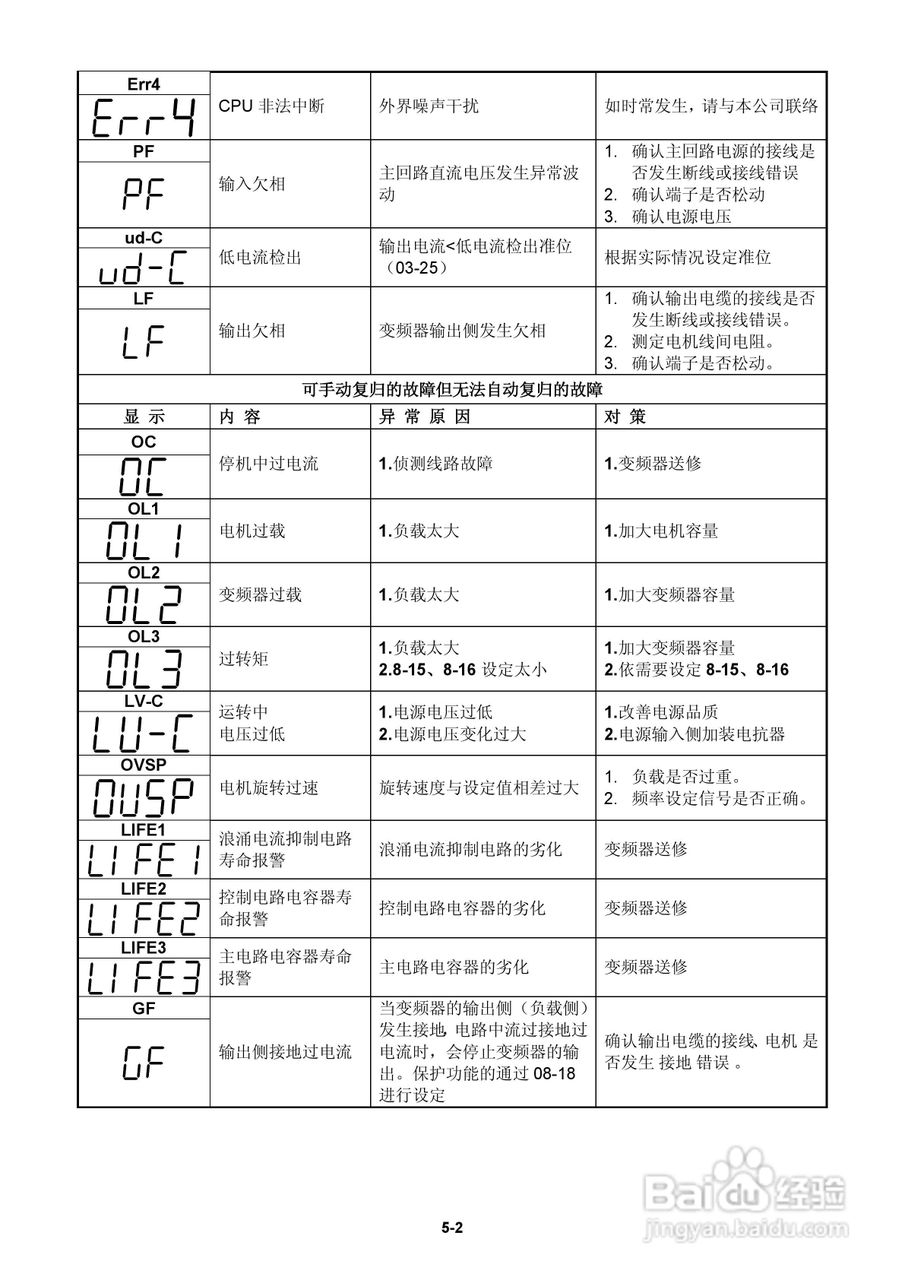 Err4
Err4
CPU 非法中断
外界噪声干扰
如时常发生，请与本公司联络
PF
PF
输入欠相
主回路直流电压发生异常波
动
1. 确认主回路电源的接线是
否发生断线或接线错误
2. 确认端子是否松动
3. 确认电源电压
ud-C
ud-C
低电流检出
输出电流<低电流检出准位
（03-25）
根据实际情况设定准位
LF
LF
输出欠相
变频器输出侧发生欠相
1. 确认输出电缆的接线是否
发生断线或接线错误。
2. 测定电机线间电阻。
3. 确认端子是否松动。
可手动复归的故障但无法自动复归的故障
显 示
内 容
异 常 原 因
对 策
OC
OC
停机中过电流
1.侦测线路故障
1.变频器送修
OL1
OL1
电机过载
1.负载太大
1.加大电机容量
OL2
OL2
变频器过载
1.负载太大
1.加大变频器容量
OL3
OL3
过转矩
1.负载太大
2.8-15、8-16 设定太小
1.加大变频器容量
2.依需要设定 8-15、8-16
LV-C
LV-C
运转中
电压过低
1.电源电压过低
2.电源电压变化过大
1.改善电源品质
2.电源输入侧加装电抗器
OVSP
OVSP
电机旋转过速
旋转速度与设定值相差过大
1. 负载是否过重。
2. 频率设定信号是否正确。
LIFE1
LIFE1
浪涌电流抑制电路
寿命报警
浪涌电流抑制电路的劣化
变频器送修
LIFE2
LIFE2
控制电路电容器寿
命报警
控制电路电容器的劣化
变频器送修
LIFE3
LIFE3
主电路电容器寿命
报警
主电路电容器的劣化
变频器送修
GF
GF
输出侧接地过电流
当变频器的输出侧（负载侧）
发生接地，电路中流过接地过
电流时，会停止变频器的输
出。保护功能的通过 08-18
进行设定
确认输出电缆的接线、电机 是
否发生 接地 错误 。
5-2
Baidu经验
jingyan.baidu.com